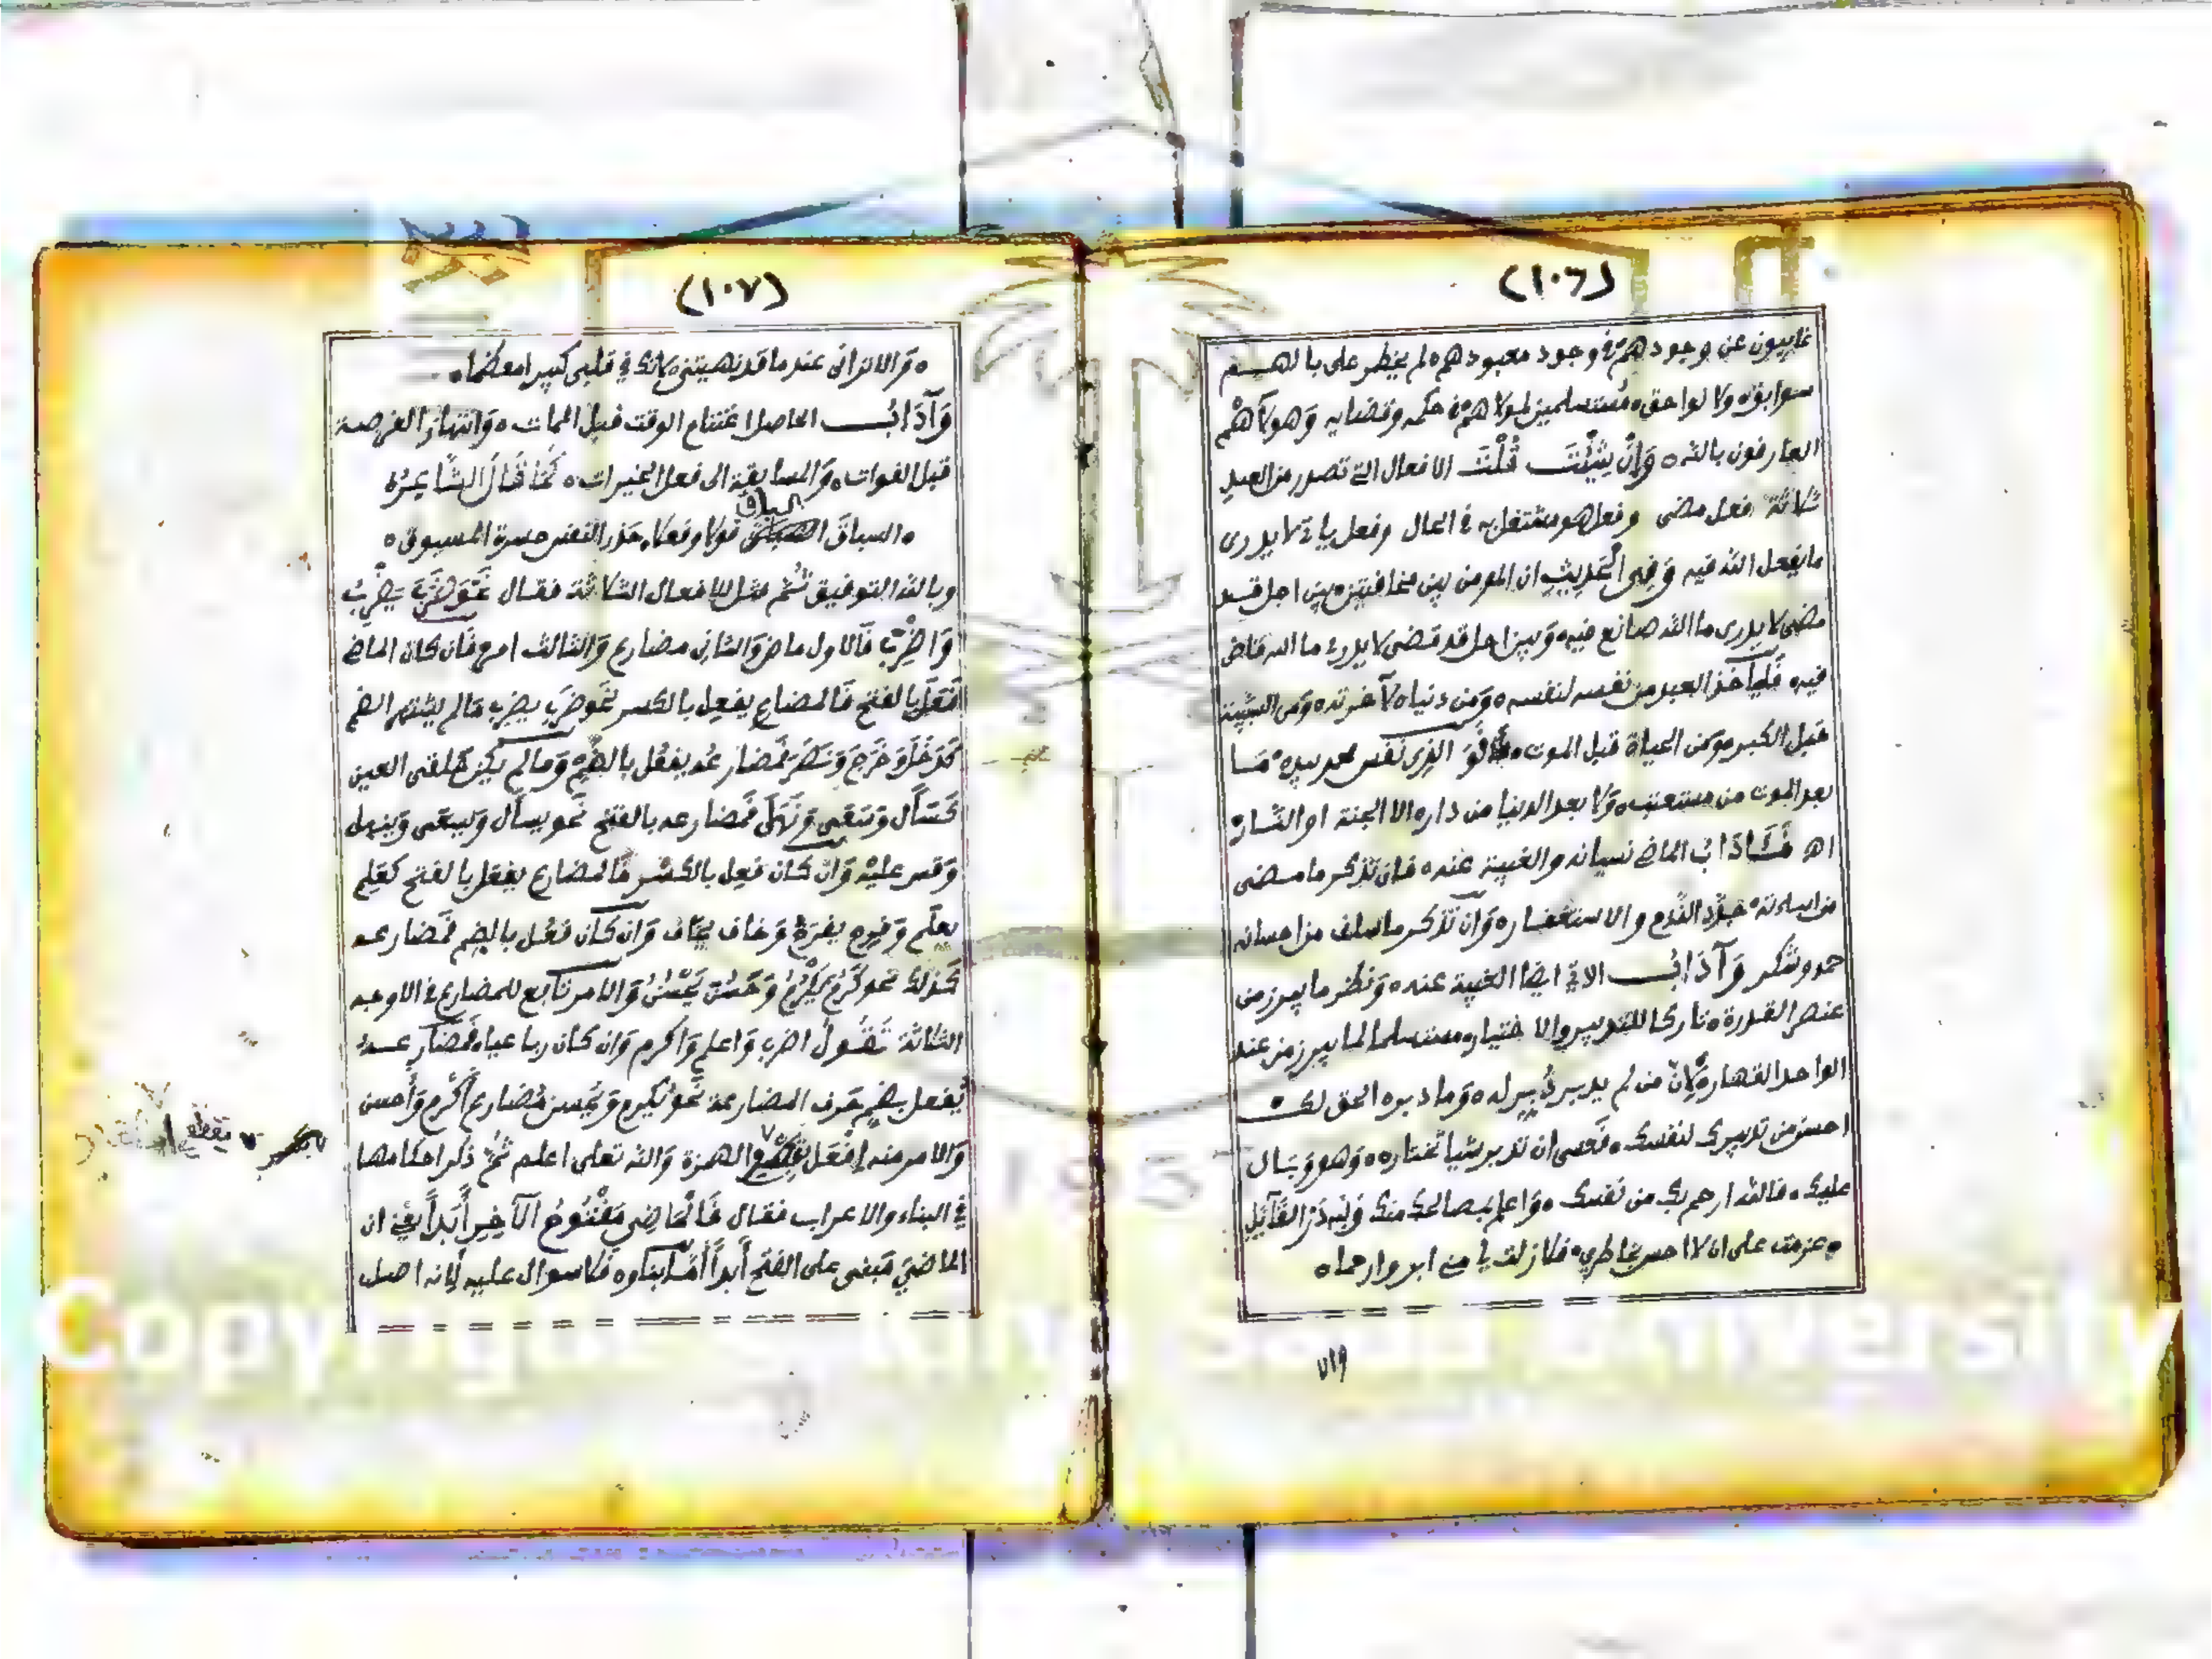 (١٠٦)
غايبون عن وجودهم في وجود معبودهم لم يخطر على بالهم
سوابق ولا لواحق مستسلمين لمولاهم في حكمه وقضايه وهولآ هم
العارفون بالله وَإِنْ شِئْتَ قُلْتَ الافعال التي تصدر من العبد
ثلاثة فعل مضى وفعل هو مشتغل به في الحال وفعل ياتي لا يدرى
ما يفعل الله فيه وَفِي الْحَدِيثِ ان المومن بين مخافتين بين اجل قد
مضى لا يدرى ما الله صانع فيه وبين اجل قد قضى لا يدرى ما الله قاض
فيه فليأخذ العبد من نفسه لنفسه ومن دنياه لآخرته ومن الشبيبة
قبل الكبر ومن الحياة قبل الموت فَوَ الذي نفس محمد بيده مَا
بعد الموت من مستعتب ولا بعد الدنيا من دار الا الجنة او النار
اهـ فَئَادَابُ الماضي نسيانه والغيبة عنه فان تذكر ما مضى
من اساءته جدد الندم والاستغفار وَان تذكر ما سلف من احسانه
حمد وشكر وَآدَابُ الاتي ايضا الغيبة عنه وَنظر ما يبرز من
عنصر القدرة تاركا للتدبير والاختيار مستسلما لما يبرز من عند
الواحد القهار لِأَنَّ من لم يدبر دُبِّر له وَما دبره الحق لك
احسن من تدبيرك لنفسك فعسى ان تدبر شيا تختاره وَهو وَبال
عليك فالله ارحم بك من نفسك وَاعلم بمصالحك منك وَلِلَّهِ دَرُّ القَآئِلِ
عزمت على ان لا احس بخاطري فلا زلت بي مني ابر وارحما
والا
(١٠٧)
وَالا تراني عند ما قد نهيتني لانك في قلبي كبيرا معظما
وَآدَابُ الحاصل اغتنام الوقت قبل الممات وَانتهاز الفرصة
قبل الفوات وَالمسابقة الى فعل الخيرات كَمَا قَالَ الشَّاعِرُ
السباق السباق قولا وفعلا حذر النفس حسرة المسبوق
وبالله التوفيق ثُمَّ مثل للافعال الثلاثة فقال نَحْوَ ضَرَبَ يَضْرِبُ
وَاضْرِبْ فَالاول ماض وَالثاني مضارع وَالثالث امر فَان كان الماضي
فَعَلَ بالفتح فَالمضارع يفعِل بالكسر نَحو ضرَب يضرِب مَا لم يشتهر الضم
كَدَخَلَ وَخَرَجَ وَنَصَرَ فَمضارعه يفعُل بالضم وَما لم يكن حلقي العين
كَسَأَل وَسَعَى وَنَهَى فَمضارعه بالفتح نَحو يسأل وَيسعى وَينهى
وَقس عليه وَان كان فعِل بالكسر فَالمضارع يفعَل بالفتح كعَلِم
يعلَم وَفرِح يفرَح وَخاف يخاف وَان كان فعُل بالضم فَمضارعه
كَذلك نحو كَرُمَ يَكْرُمُ وَحَسُنَ يَحْسُنُ وَالامر تابع للمضارع في الاوجه
الثلاثة تَقُولُ اضرِب وَاعلم وَاكرم وَان كان رباعيا فَمضارعه
يُفعل بضم حرف المضارعة نَحو يُكرم وَيُحسن مُضارع أكرم وَأحسن
وَالامر منه أفْعَل الهمزة وَالله تعلى اعلم ثُمَّ ذكر احكامها
في البناء والاعراب فقال فَالْمَاضِي مَفْتُوحُ الآخِرِ أَبَداً يعني ان
الماضيَ مَبني على الفتح أَبداً أمّا بناؤه فَلا سوال عليه لِانه اصل